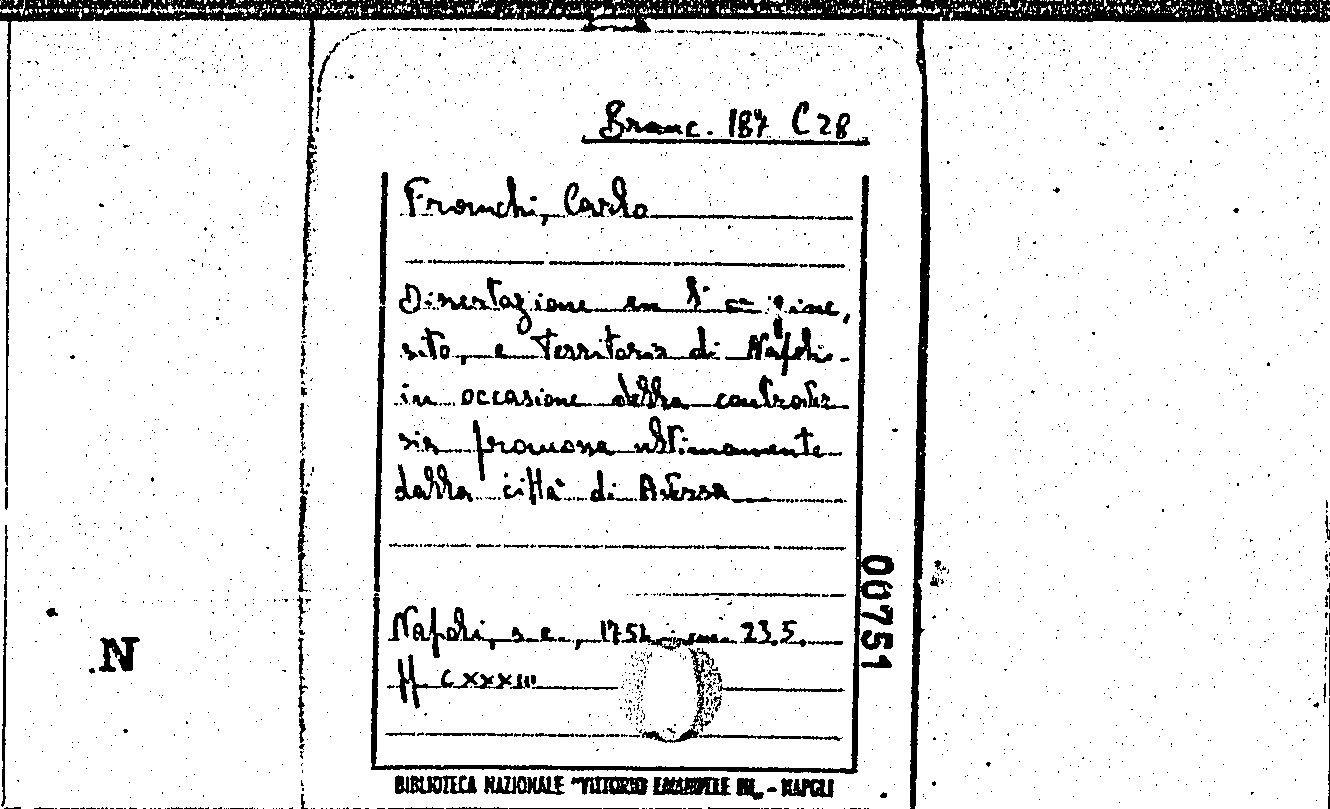 Branc. 187 C 28
Franchi, Carlo
Dissertazione su l'origine,
sito, e territorio di Napoli
in occasione della controver
sia promossa ultimamente
dalla città di Aversa
Napoli, s.e., 1752 in 23,5.
pp. CXXXIII
00751
N
BIBLIOTECA NAZIONALE "VITTORIO EMANUELE III" - NAPOLI